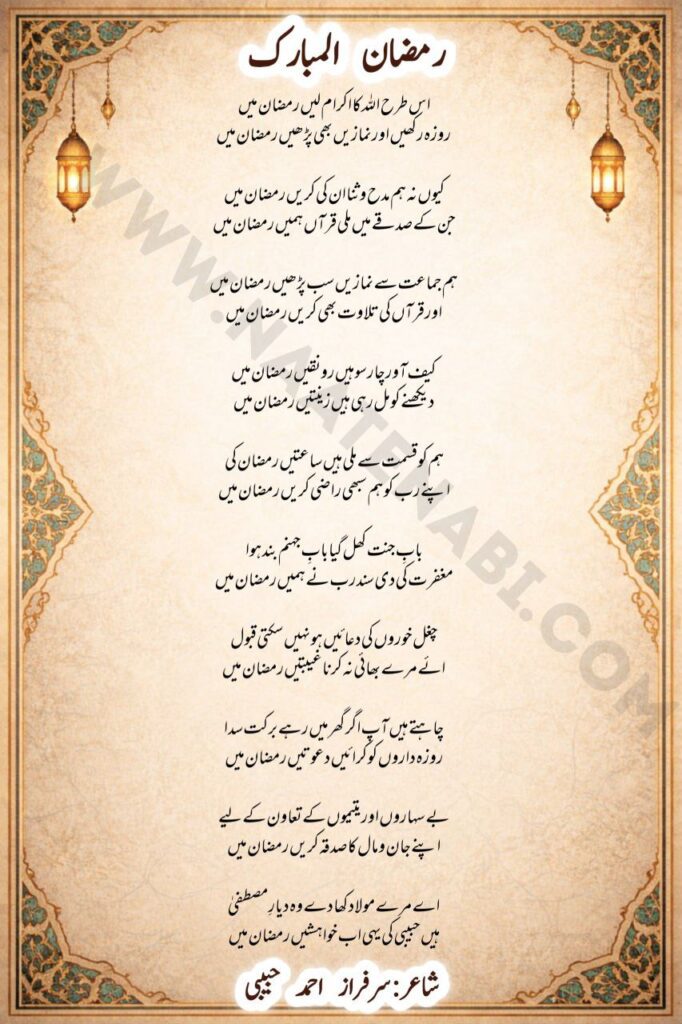 رمضان المبارک
اس طرح اللہ کا اکرام لیں رمضان میں
روزہ رکھیں اور نمازیں بھی پڑھیں رمضان میں
کیوں نہ ہم مدح و ثنا ان کی کریں رمضان میں
جن کے صدقے میں ملی قرآں ہمیں رمضان میں
ہم جماعت سے نمازیں سب پڑھیں رمضان میں
اور قرآں کی تلاوت بھی کریں رمضان میں
کیف آور چار سو ہیں رونقیں رمضان میں
دیکھنے کو مل رہی ہیں زینتیں رمضان میں
ہم کو قسمت سے ملی ہیں ساعتیں رمضان کی
اپنے رب کو ہم سبھی راضی کریں رمضان میں
بابِ جنت کھل گیا بابِ جہنم بند ہوا
مغفرت کی دی سند رب نے ہمیں رمضان میں
چغل خوروں کی دعائیں ہو نہیں سکتی قبول
ائے مرے بھائی نہ کرنا غیبتیں رمضان میں
چاہتے ہیں آپ اگر گھر میں رہے برکت سدا
روزہ داروں کو کرائیں دعوتیں رمضان میں
بے سہاروں اور یتیموں کے تعاون کے لیے
اپنے جان و مال کا صدقہ کریں رمضان میں
اے مرے مولا دکھا دے وہ دیارِ مصطفیٰ
ہیں حبیبی کی یہی اب خواہشیں رمضان میں
شاعر: سرفراز احمد حبیبی
WWW.NAATENABI.COM